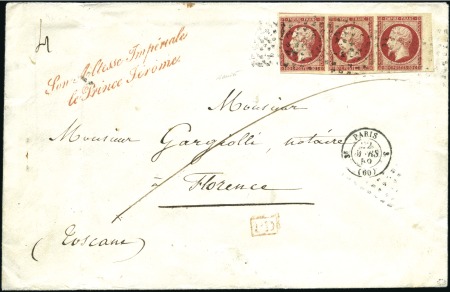 Son Altesse Impériale
le Prince Jérôme
EMPIRE FRANC EMPIRE FRANC EMPIRE FRANC
Monsieur
Monsieur Gargiolli, notaire
à
Florence
(Toscane)
PARIS
MARS
(60)